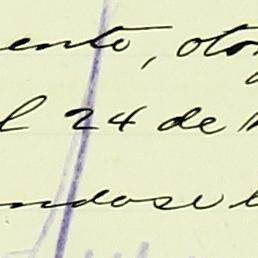 ento, oto
l 24 de
ndose l